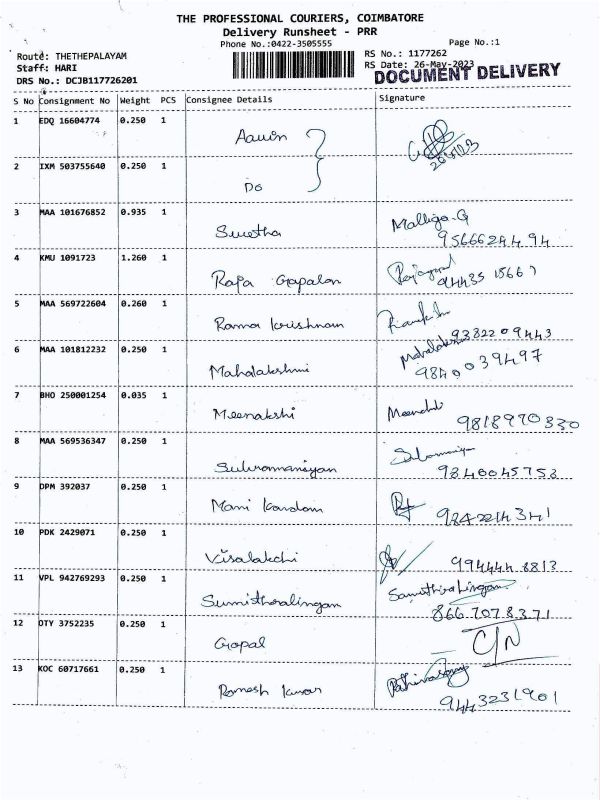 THE PROFESSIONAL COURIERS, COIMBATORE
Delivery Runsheet - PRR
Phone No.:0422-3505555
Page No.:1
Route: THETHEPALAYAM
RS No.: 1177262
Staff: HARI
RS Date: 26-May-2023
DRS No.: DCJB117726201
DOCUMENT DELIVERY
S No Consignment No Weight PCS Consignee Details Signature
1 EDQ 16604774 0.250 1
Aavin
26/5/23
2 IXM 503755640 0.250 1
Do
3 MAA 101676852 0.935 1
Swetha
Malliga.G
9566624494
4 KMU 1091723 1.260 1
Raja Gopalan
94435 15667
5 MAA 569722604 0.260 1
Rama Krishnam
9382209443
6 MAA 101812232 0.250 1
Mahalakshmi
Mahalakshmi
9840039497
7 BHO 250001254 0.035 1
Meenakshi
Meenakshi
9818970330
8 MAA 569536347 0.250 1
Subramaniyan
9840045753
9 DPM 392037 0.250 1
Mani Kandam
9842214341
10 PDK 2429071 0.250 1
Visalakchi
994444 8813
11 VPL 942769293 0.250 1
Sumithiralingam
Samuthiralingam
866 707 8371
12 OTY 3752235 0.250 1
Gopal
C/N
13 KOC 60717661 0.250 1
Ramesh Kumar
9443231901